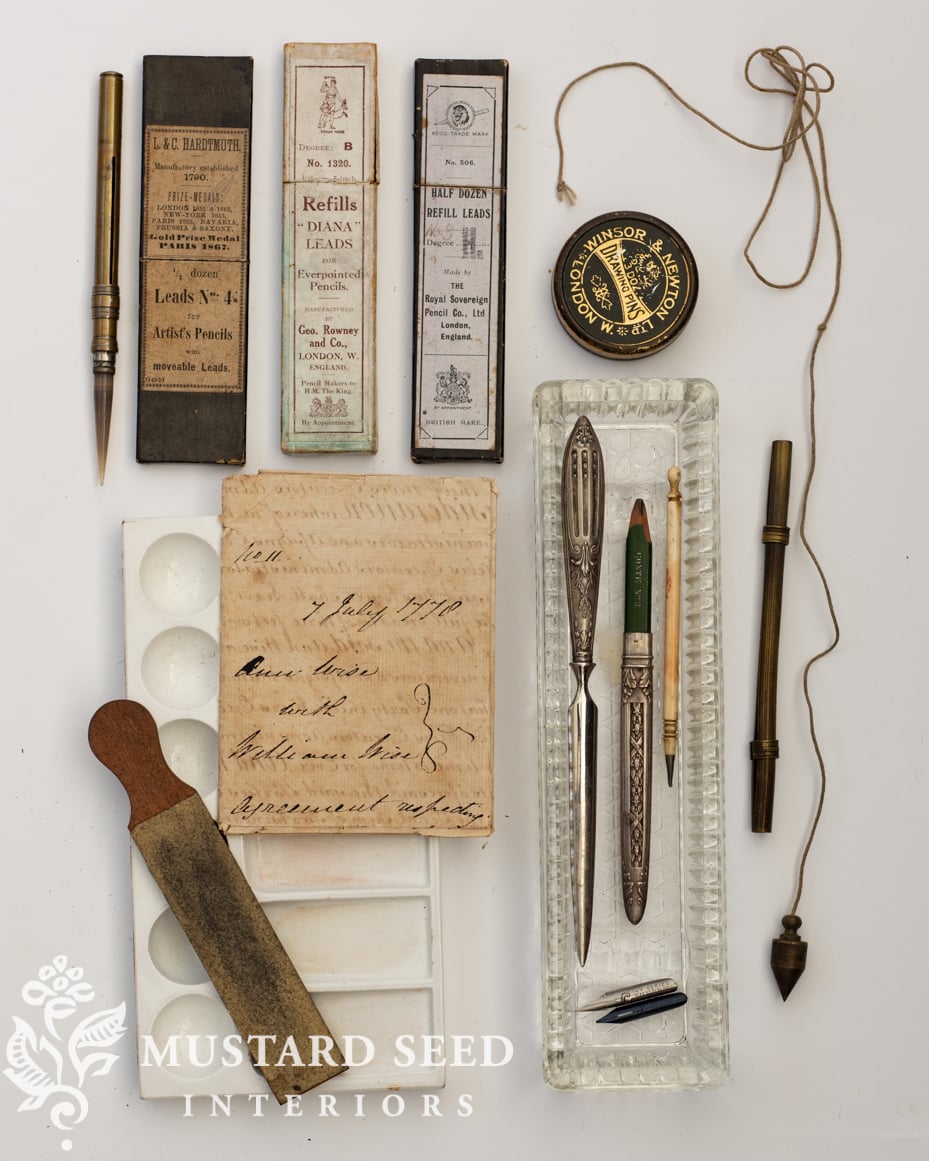 L. & C. HARDTMUTH.
Manufactory established
1790.
PRIZE-MEDALS:
LONDON 1851 & 1862,
NEW-YORK 1853,
PARIS 1855, BAVARIA,
PRUSSIA & SAXONY.
Gold Prize Medal
PARIS 1867.
1/2 dozen
Leads No: 4
for
Artist's Pencils
with
moveable Leads.
TRADE MARK
DEGREE: B
No. 1320.
Refills
"DIANA"
LEADS
FOR
Everpointed
Pencils.
MANUFACTURED
BY
Geo. Rowney
and Co.,
LONDON, W.
ENGLAND.
Pencil Makers to
H.M. The King.
By Appointment.
REGD. TRADE MARK
No. 506.
HALF DOZEN
REFILL LEADS
Degree
Made by
THE
Royal Sovereign
Pencil Co., Ltd
London,
England.
BY APPOINTMENT
BRITISH MAKE.
WINSOR & NEWTON
LTD
LONDON. W.
DRAWING PINS
No. 11
7 July 1778
Ann Wise
with
William Wise
Agreement respecting
CONTE No
MUSTARD SEED
INTERIORS